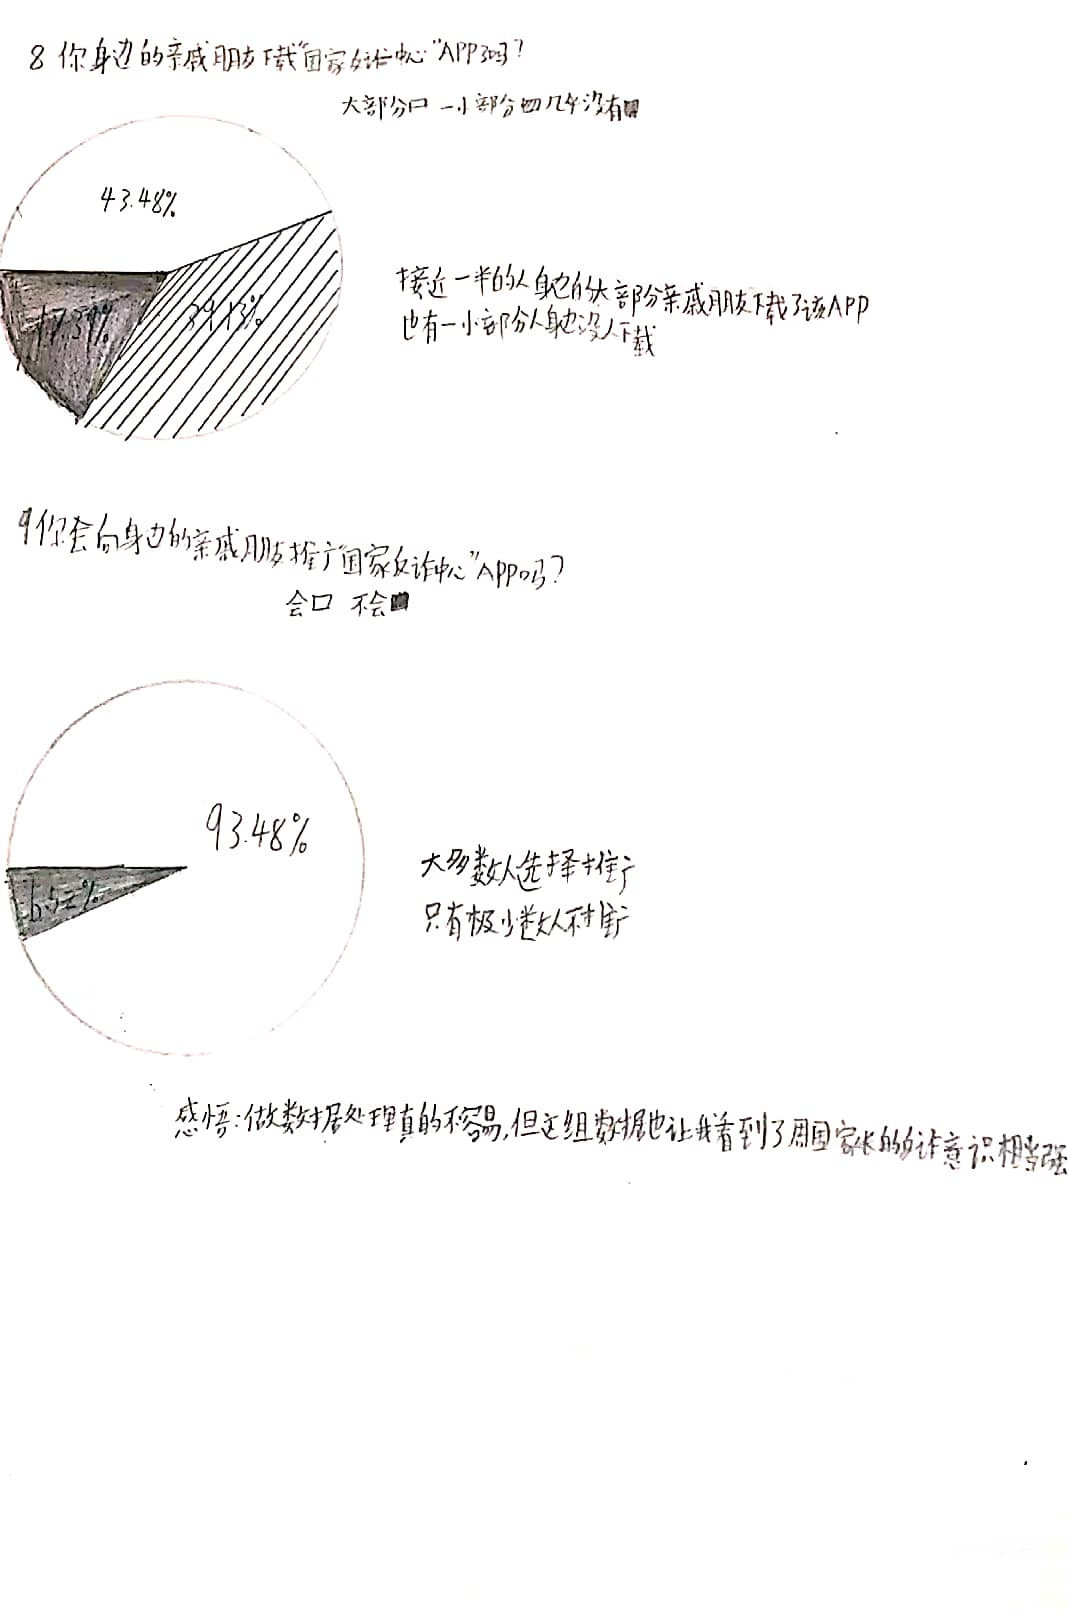 8 你身边的亲戚朋友下载"国家反诈中心"APP了吗?
大部分口 一小部分四 几乎没有■
43.48%
17.39% 39.13%
接近一半的人身边的大部分亲戚朋友下载了该APP
也有一小部分人身边没人下载
9 你会向身边的亲戚朋友推广"国家反诈中心"APP吗?
会口 不会■
93.48%
6.52%
大多数人选择推广
只有极少数人不推广
感悟:做数据处理真的不容易,但这组数据也让我看到了周围家长的反诈意识相当强